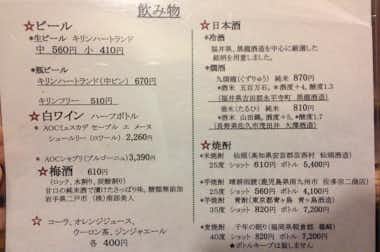 飲み物
☆ビール
*生ビール キリンハートランド
中 560円 小 410円
*瓶ビール
キリンハートランド(中ビン) 670円
キリンフリー 510円
☆白ワイン ハーフボトル
*AOCミュスカデ セーブル エ メーヌ
シュールリー (ロワール) 2,260円
*AOCシャブリ(ブルゴーニュ) 3,390円
☆梅酒 610円
(ロック、水割り、炭酸割り)
甘口の米焼酎で漬けたさっぱり味、糖類無添加
岩手県二戸市 (株)南部美人
☆ コーラ、オレンジジュース、
ウーロン茶、ジンジャエール
各 400円
☆日本酒
*冷酒
福井県、黒龍酒造を中心に厳選した
銘柄を用意しました。
*燗酒
九頭龍(くずりゅう) 純米 870円
*酒米 五百万石、*酸度+4、酸度1.3
(福井県吉田郡永平寺町 黒龍酒造)
(たるひ) 純米 810円
*酒米 *酒度+5、*酸度1.7
(長野県佐久市茂田井 大澤酒造)
☆焼酎
*米焼酎 (高知県安芸郡芸西村 仙頭酒造)
25度 ショット 610円 ボトル 5,400円
*芋焼酎 (鹿児島県南九州市 佐多宗二商店)
25度 ショット 560円 ボトル 4,100円
*芋焼酎 青酎(東京都青ヶ島 青ヶ島酒造)
40度 ショット 820円 ボトル 7,200円
*麦焼酎 千年の眠り(福岡県朝倉郡 篠崎)
40度 ショット 820円 ボトル 7,200円
*ボトルキープは無し